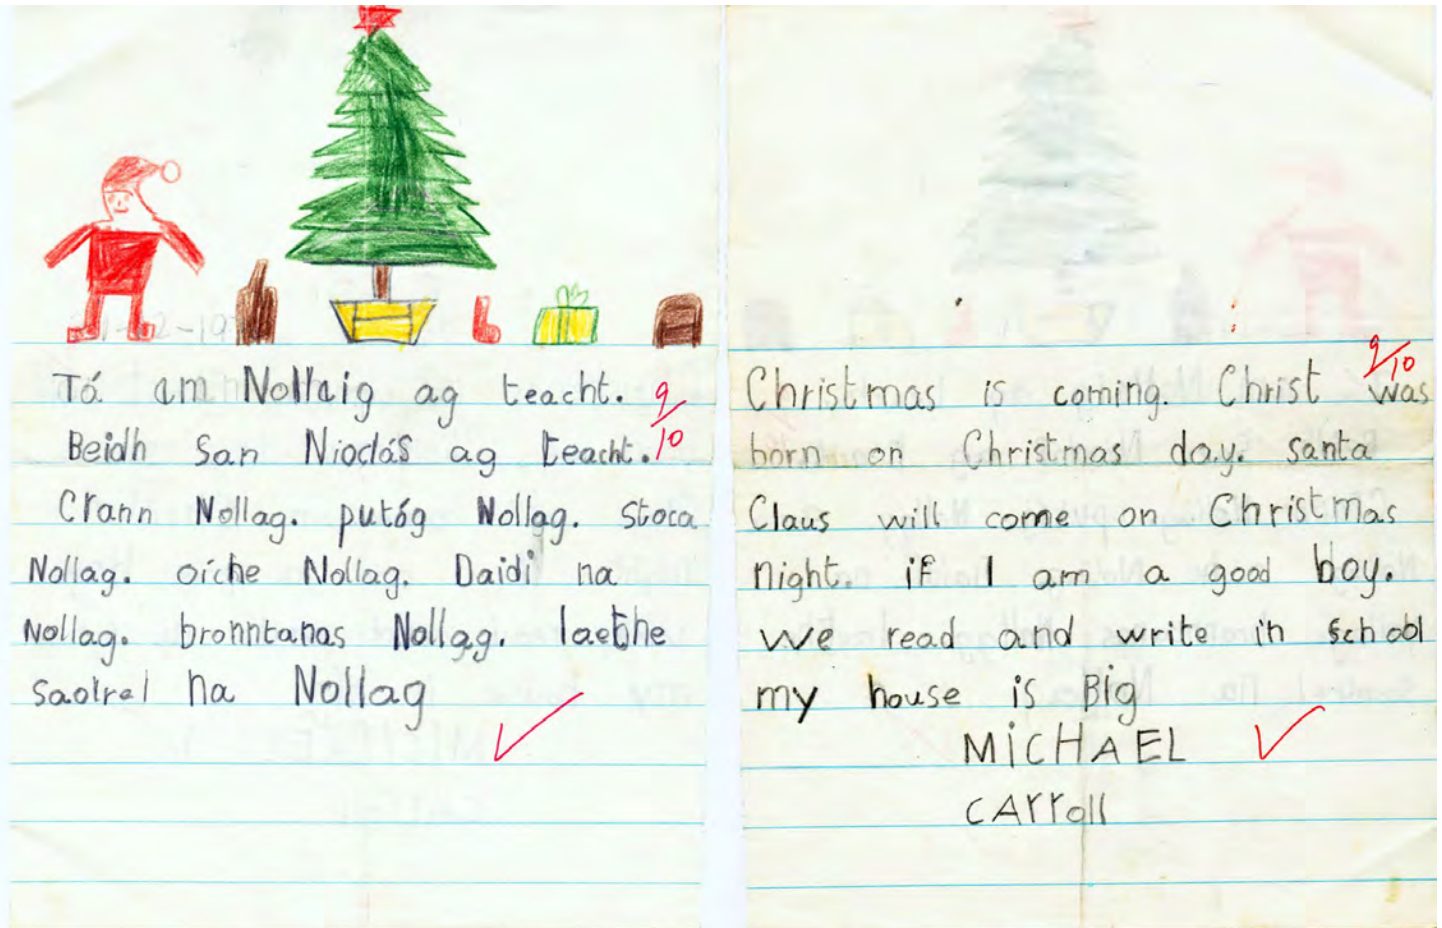 Tá am Nollaig ag teacht.
9/10
Beidh San Nioclás ag teacht.
Crann Nollag. putóg Nollag. Stoca
Nollag. oíche Nollag. Daidi na
Nollag. bronntanas Nollag. laethe
na Nollag
Christmas is coming. Christ was
9/10
born on Christmas day. santa
Claus will come on Christmas
night. if I am a good boy.
we read and write in school
my house is Big
MiCHAEL
CArroll